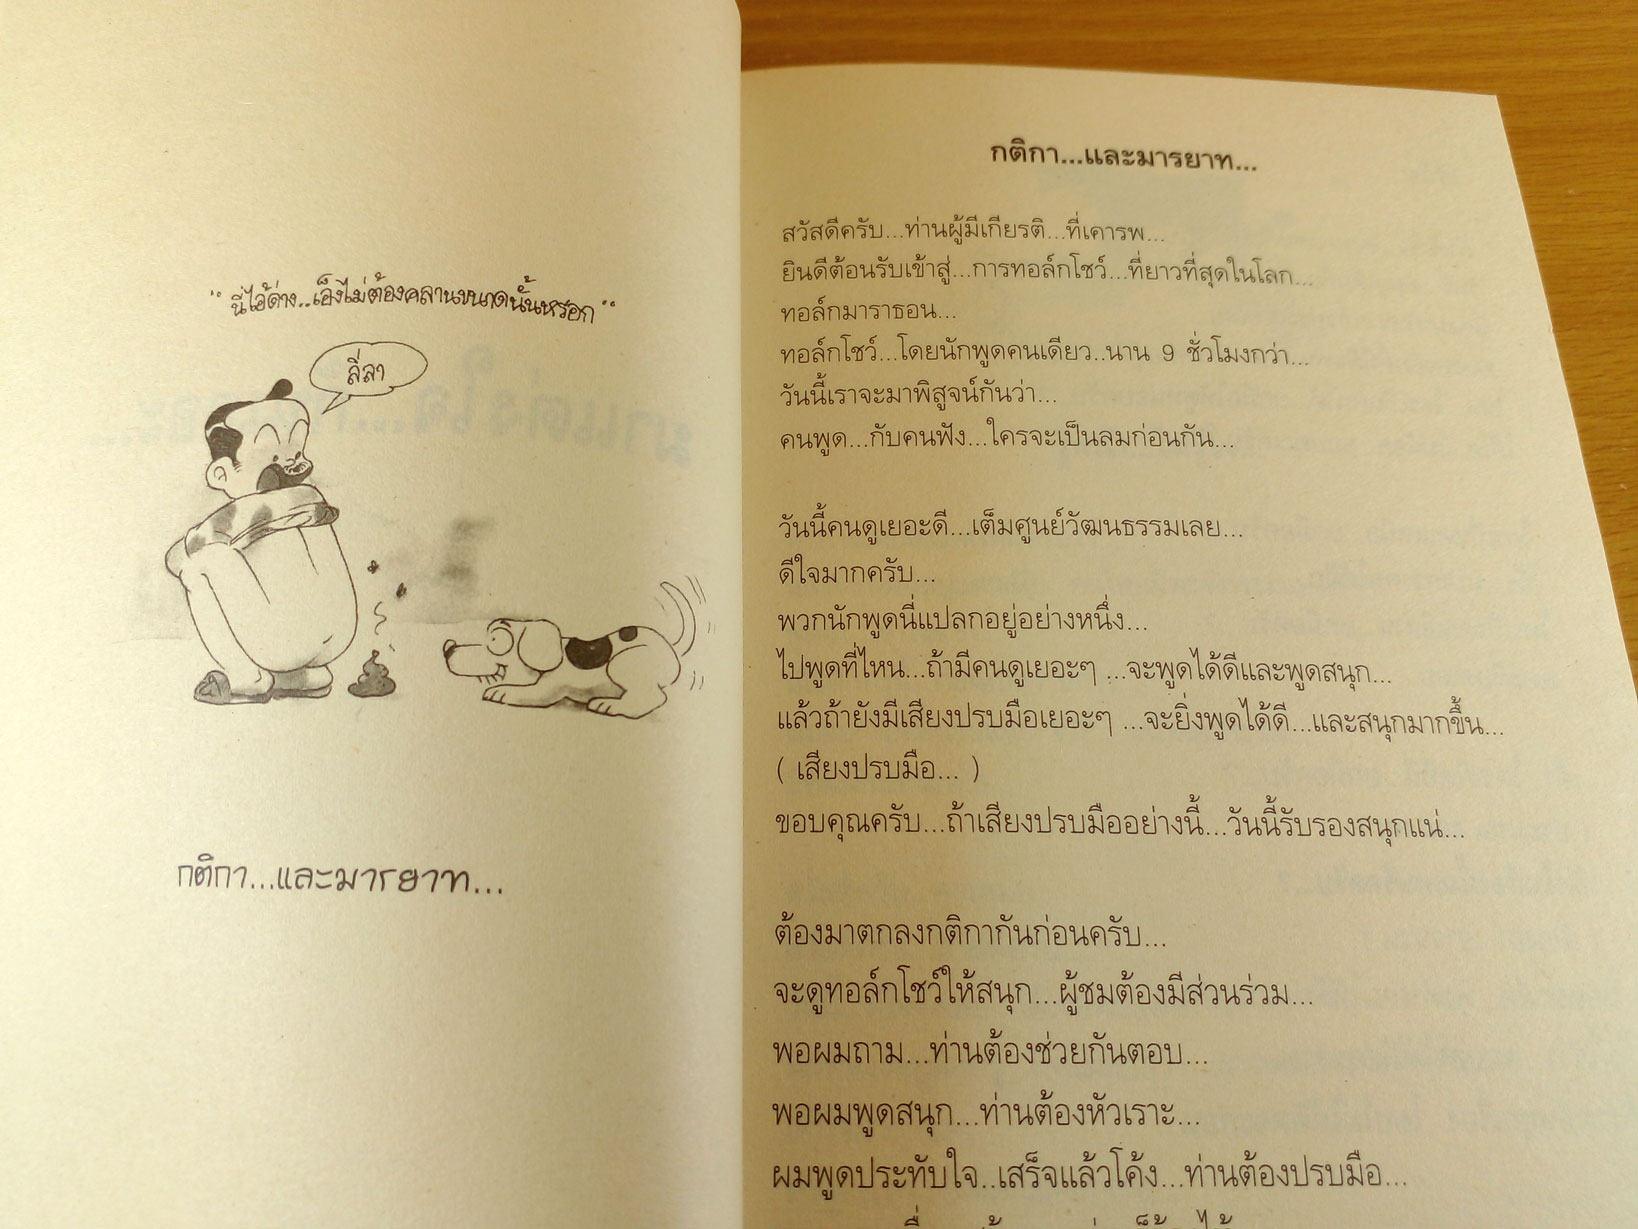 "นี่ไอ้ด่าง..เอ็งไม่ต้องคลานขนาดนั้นหรอก"
ลี่ลา
กติกา...และมารยาท...
กติกา...และมารยาท...
สวัสดีครับ...ท่านผู้มีเกียรติ...ที่เคารพ...
ยินดีต้อนรับเข้าสู่...การทอล์กโชว์...ที่ยาวที่สุดในโลก...
ทอล์กมาราธอน...
ทอล์กโชว์...โดยนักพูดคนเดียว..นาน 9 ชั่วโมงกว่า...
วันนี้เราจะมาพิสูจน์กันว่า...
คนพูด...กับคนฟัง...ใครจะเป็นลมก่อนกัน...
วันนี้คนดูเยอะดี...เต็มศูนย์วัฒนธรรมเลย...
ดีใจมากครับ...
พวกนักพูดนี่แปลกอยู่อย่างหนึ่ง...
ไปพูดที่ไหน...ถ้ามีคนดูเยอะๆ ...จะพูดได้ดีและพูดสนุก...
แล้วถ้ายังมีเสียงปรบมือเยอะๆ ...จะยิ่งพูดได้ดี...และสนุกมากขึ้น...
( เสียงปรบมือ... )
ขอบคุณครับ...ถ้าเสียงปรบมืออย่างนี้...วันนี้รับรองสนุกแน่...
ต้องมาตกลงกติกากันก่อนครับ...
จะดูทอล์กโชว์ให้สนุก...ผู้ชมต้องมีส่วนร่วม...
พอผมถาม...ท่านต้องช่วยกันตอบ...
พอผมพูดสนุก...ท่านต้องหัวเราะ...
ผมพูดประทับใจ..เสร็จแล้วโค้ง...ท่านต้องปรบมือ...